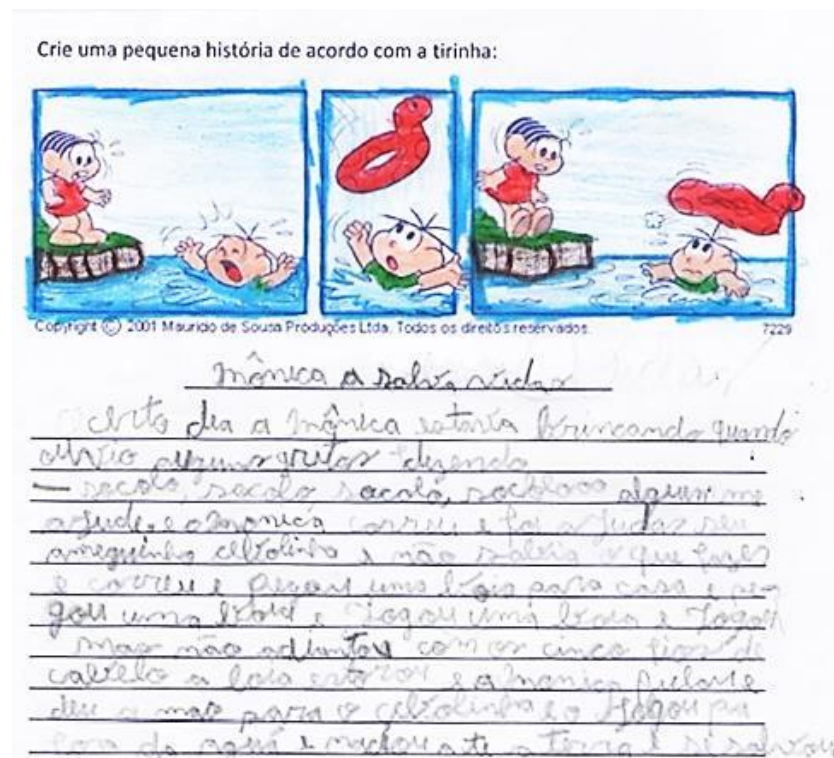 Crie uma pequena história de acordo com a tirinha:
Copyright © 2001 Mauricio de Sousa Produções Ltda. Todos os direitos reservados. 7229
Mônica a salva vidas
certo dia a Mônica estava brincando quando
ouvio alguns gritos dizendo
— socolo, socolo socolo, alguem me
ajude, e a monica correu e foi ajudar seu
ameguinho cebolinha e não sabia o que fazer
e correu e pegou uma boia para casa e pe
gou uma boia e Jogou uma boia e Jogou
mas não adiantou com os cinco fios de
cabelo a boia estorou e a monica
deu a mão para o cebolinha e o Jogou pa
fora da e nadou ate a terra e se salvou